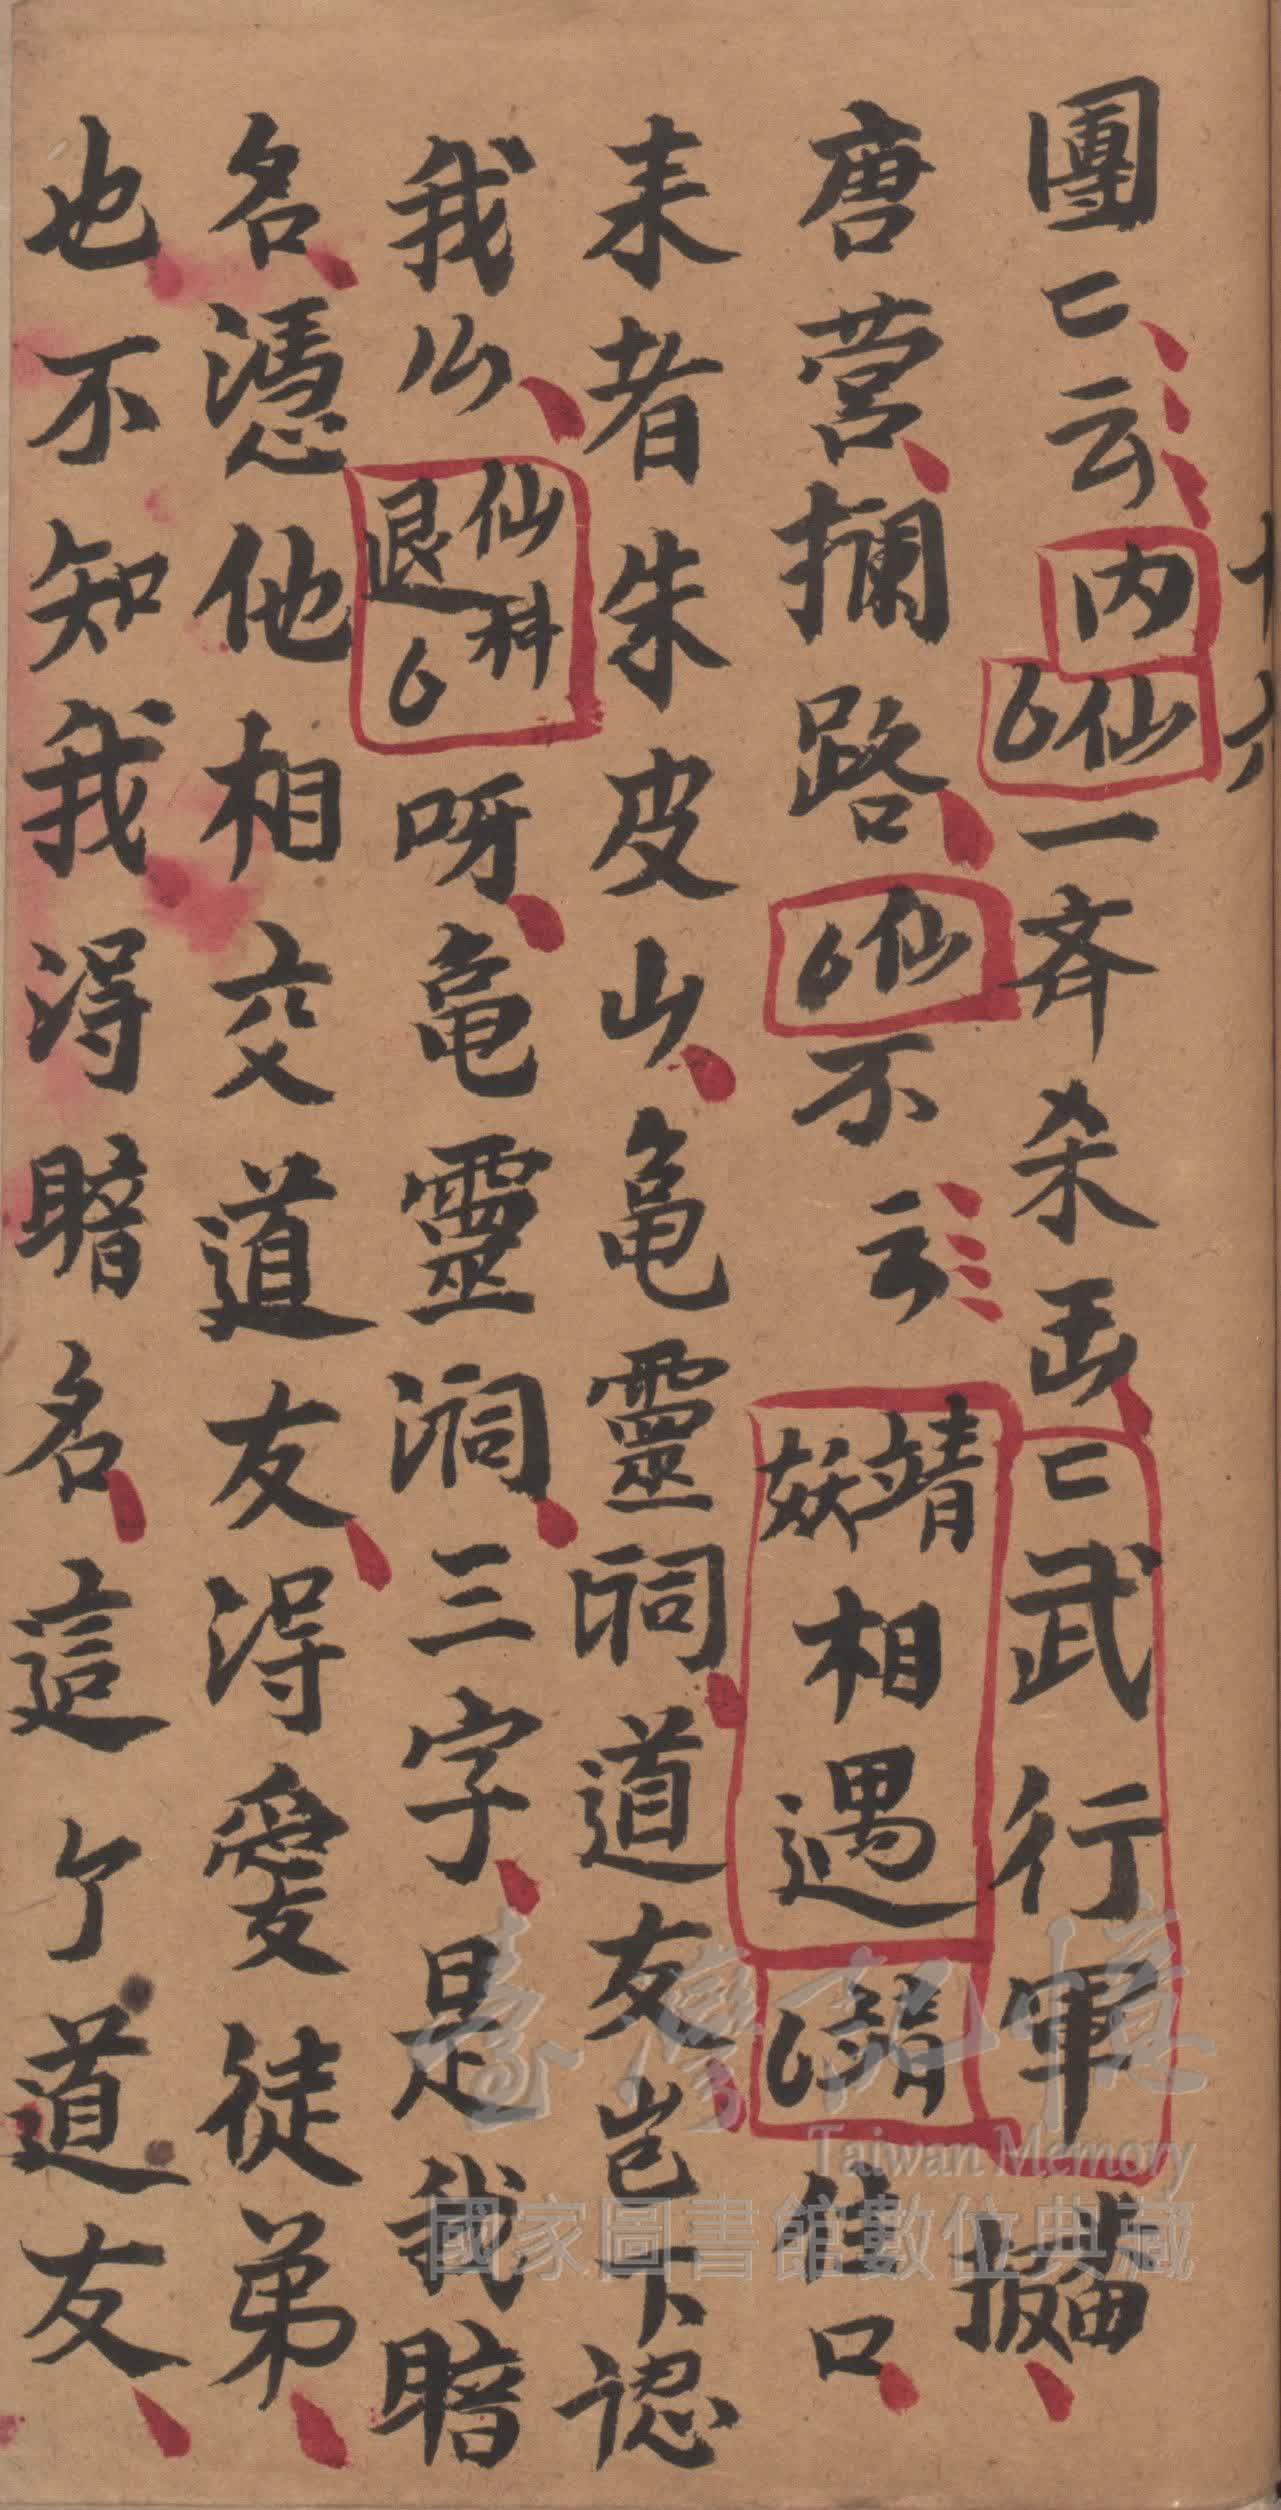 團匕云内仙白一斉杀击匕武行軍
唐营攔路仙白不云靖妖相遇靖白住口
来者朱皮山亀靈祠道友岂下認
我么仙科退白呀亀靈洞三字是我瞎
名憑他相交道友得愛徒弟
也不知我得瞎名這个道友
臺灣記憶
Taiwan Memory
國家圖書館數位典藏